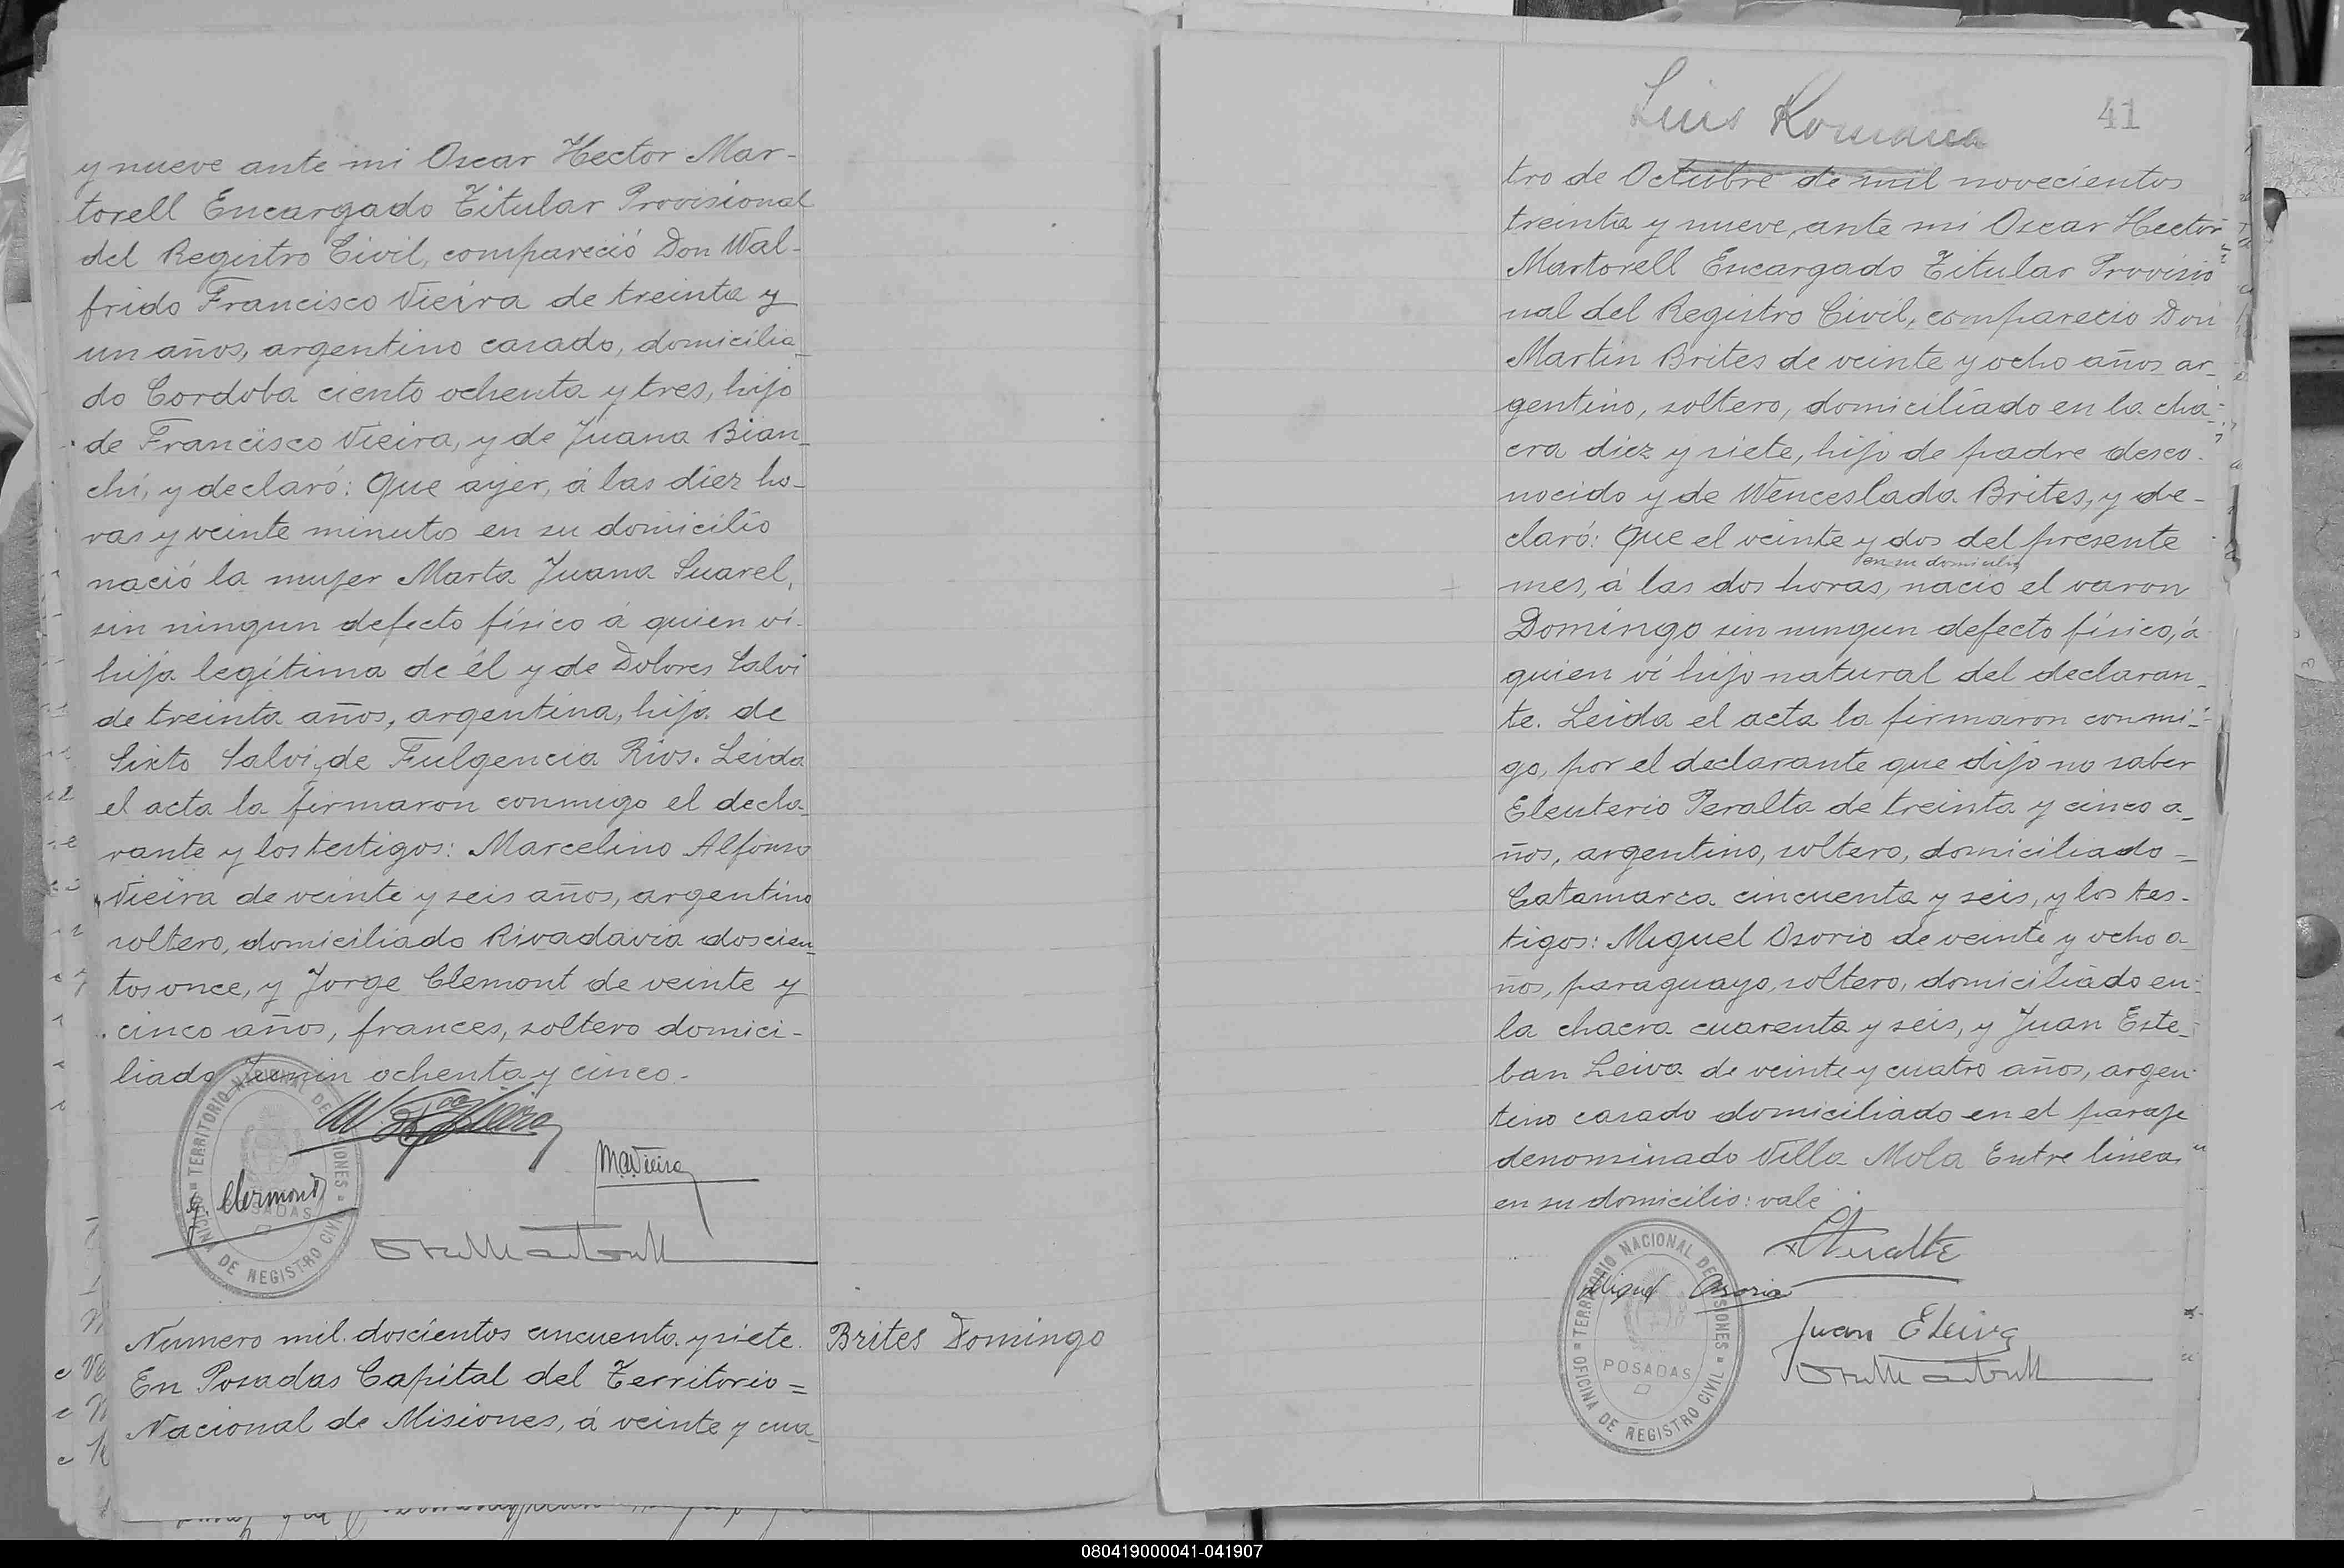 y nueve ante mi Oscar Hector Mar-
torell Encargado Titular Provisional
del Registro Civil, compareció Don Wal-
frido Francisco Vieira de treinta y
un años, argentino casado, domicilia-
do Cordoba ciento ochenta y tres, hijo
de Francisco Vieira, y de Juana Bian-
chi, y declaró: Que ayer, á las diez ho-
ras y veinte minutos en su domicilio
nació la mujer Marta Juana Suarel,
sin ningun defecto físico á quien ví-
hija legítima de él y de Dolores Salvi
de treinta años, argentina, hija de
Sixto Salvi y de Fulgencia Rios. Leida
el acta la firmaron conmigo el decla-
rante y los testigos: Marcelino Alfonso
Vieira de veinte y seis años, argentino
soltero, domiciliado Rivadavia doscien-
tos once, y Jorge Clemont de veinte y
cinco años, frances, soltero domici-
liado Junin ochenta y cinco.-
TERRITORIO NACIONAL DE MISIONES
POSADAS
OFICINA DE REGISTRO CIVIL
MAVieira
J. Clermont
Numero mil doscientos cincuenta y siete.
Brites Domingo
En Posadas Capital del Territorio =
Nacional de Misiones, á veinte y cua-
Luis Romaña
41
tro de Octubre de mil novecientos
treinta y nueve, ante mi Oscar Hector
Martorell Encargado Titular Provisio
nal del Registro Civil, comparecio Don
Martin Brites de veinte y ocho años ar-
gentino, soltero, domiciliado en la cha-
cra diez y siete, hijo de padre desco-
nocido y de Wenceslada Brites, y de-
claró: Que el veinte y dos del presente
en su domicilio
mes, á las dos horas, nacio el varon
Domingo sin ningun defecto físico, á
quien ví hijo natural del declaran-
te. Leida el acta la firmaron conmi-
go, por el declarante que dijo no saber
Eleuterio Peralta de treinta y cinco a-
ños, argentino, soltero, domiciliado -
Catamarca cincuenta y seis, y los tes-
tigos: Miguel Osorio de veinte y ocho a-
ños, paraguayo, soltero, domiciliado en
la chacra cuarenta y seis, y Juan Este-
ban Leiva de veinte y cuatro años, argen-
tino casado domiciliado en el paraje
denominado Villa Mola Entre lineas "
en su domicilio: vale
TERRITORIO NACIONAL DE MISIONES
Miguel Osorio
Juan E Leiva
POSADAS
OFICINA DE REGISTRO CIVIL
080419000041-041907